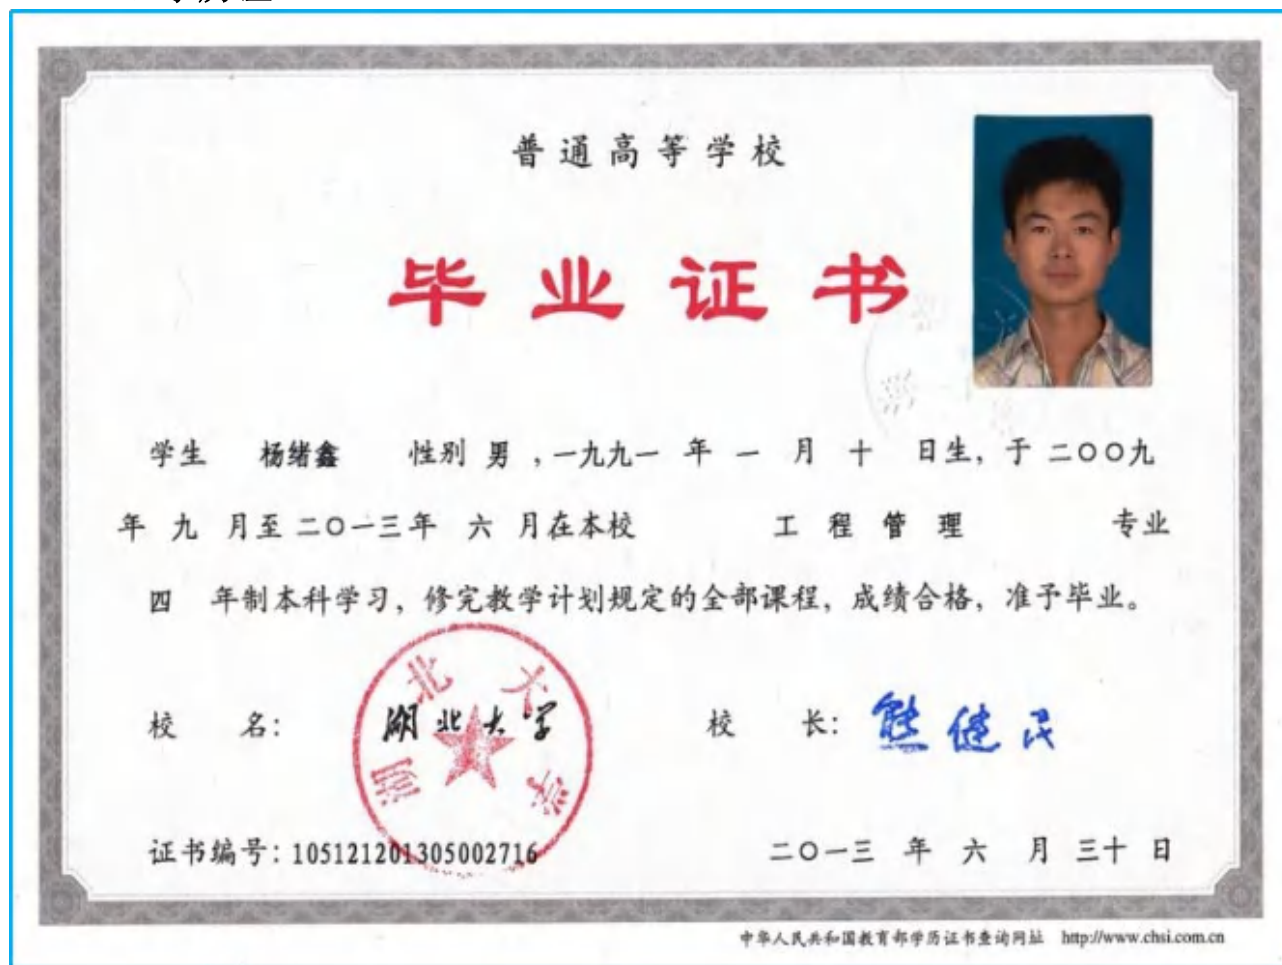 普通高等学校
毕业证书
学生 杨绪鑫 性别 男 ，一九九一 年 一 月 十 日生，于 二〇〇九
年 九 月至 二〇一三年 六 月在本校 工程管理 专业
四 年制本科学习，修完教学计划规定的全部课程，成绩合格，准予毕业。
校 名： 湖北大学 校 长： 熊健民
湖北大学
证书编号：105121201305002716 二〇一三 年 六 月 三十 日
中华人民共和国教育部学历证书查询网址 http://www.chsi.com.cn